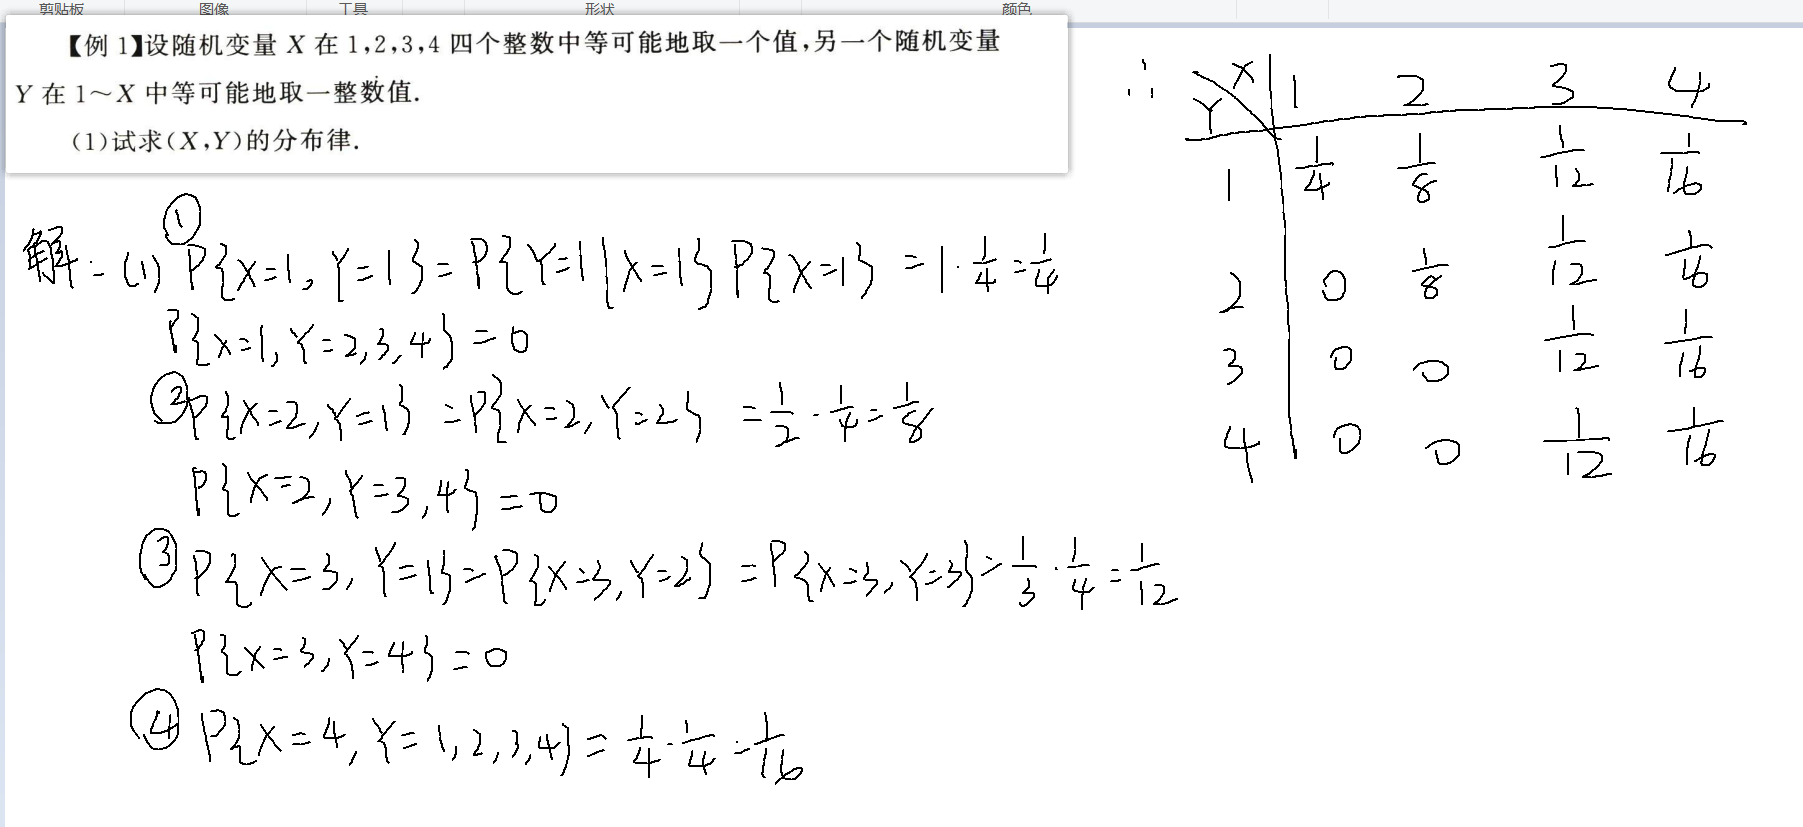 剪贴板 图像 工具 形状 颜色
【例 1】设随机变量 X 在 1,2,3,4 四个整数中等可能地取一个值,另一个随机变量
Y 在 1～X 中等可能地取一整数值.
(1)试求(X,Y)的分布律.
解:(1) ① P{X=1, Y=1} = P{Y=1|X=1}P{X=1} = 1·1/4 = 1/4
P{X=1, Y=2,3,4} = 0
② P{X=2, Y=1} = P{X=2, Y=2} = 1/2·1/4 = 1/8
P{X=2, Y=3,4} = 0
③ P{X=3, Y=1} = P{X=3, Y=2} = P{X=3, Y=3} = 1/3·1/4 = 1/12
P{X=3, Y=4} = 0
④ P{X=4, Y=1,2,3,4} = 1/4·1/4 = 1/16
∴ Y X 1 2 3 4
1 1/4 1/8 1/12 1/16
2 0 1/8 1/12 1/16
3 0 0 1/12 1/16
4 0 0 1/12 1/16